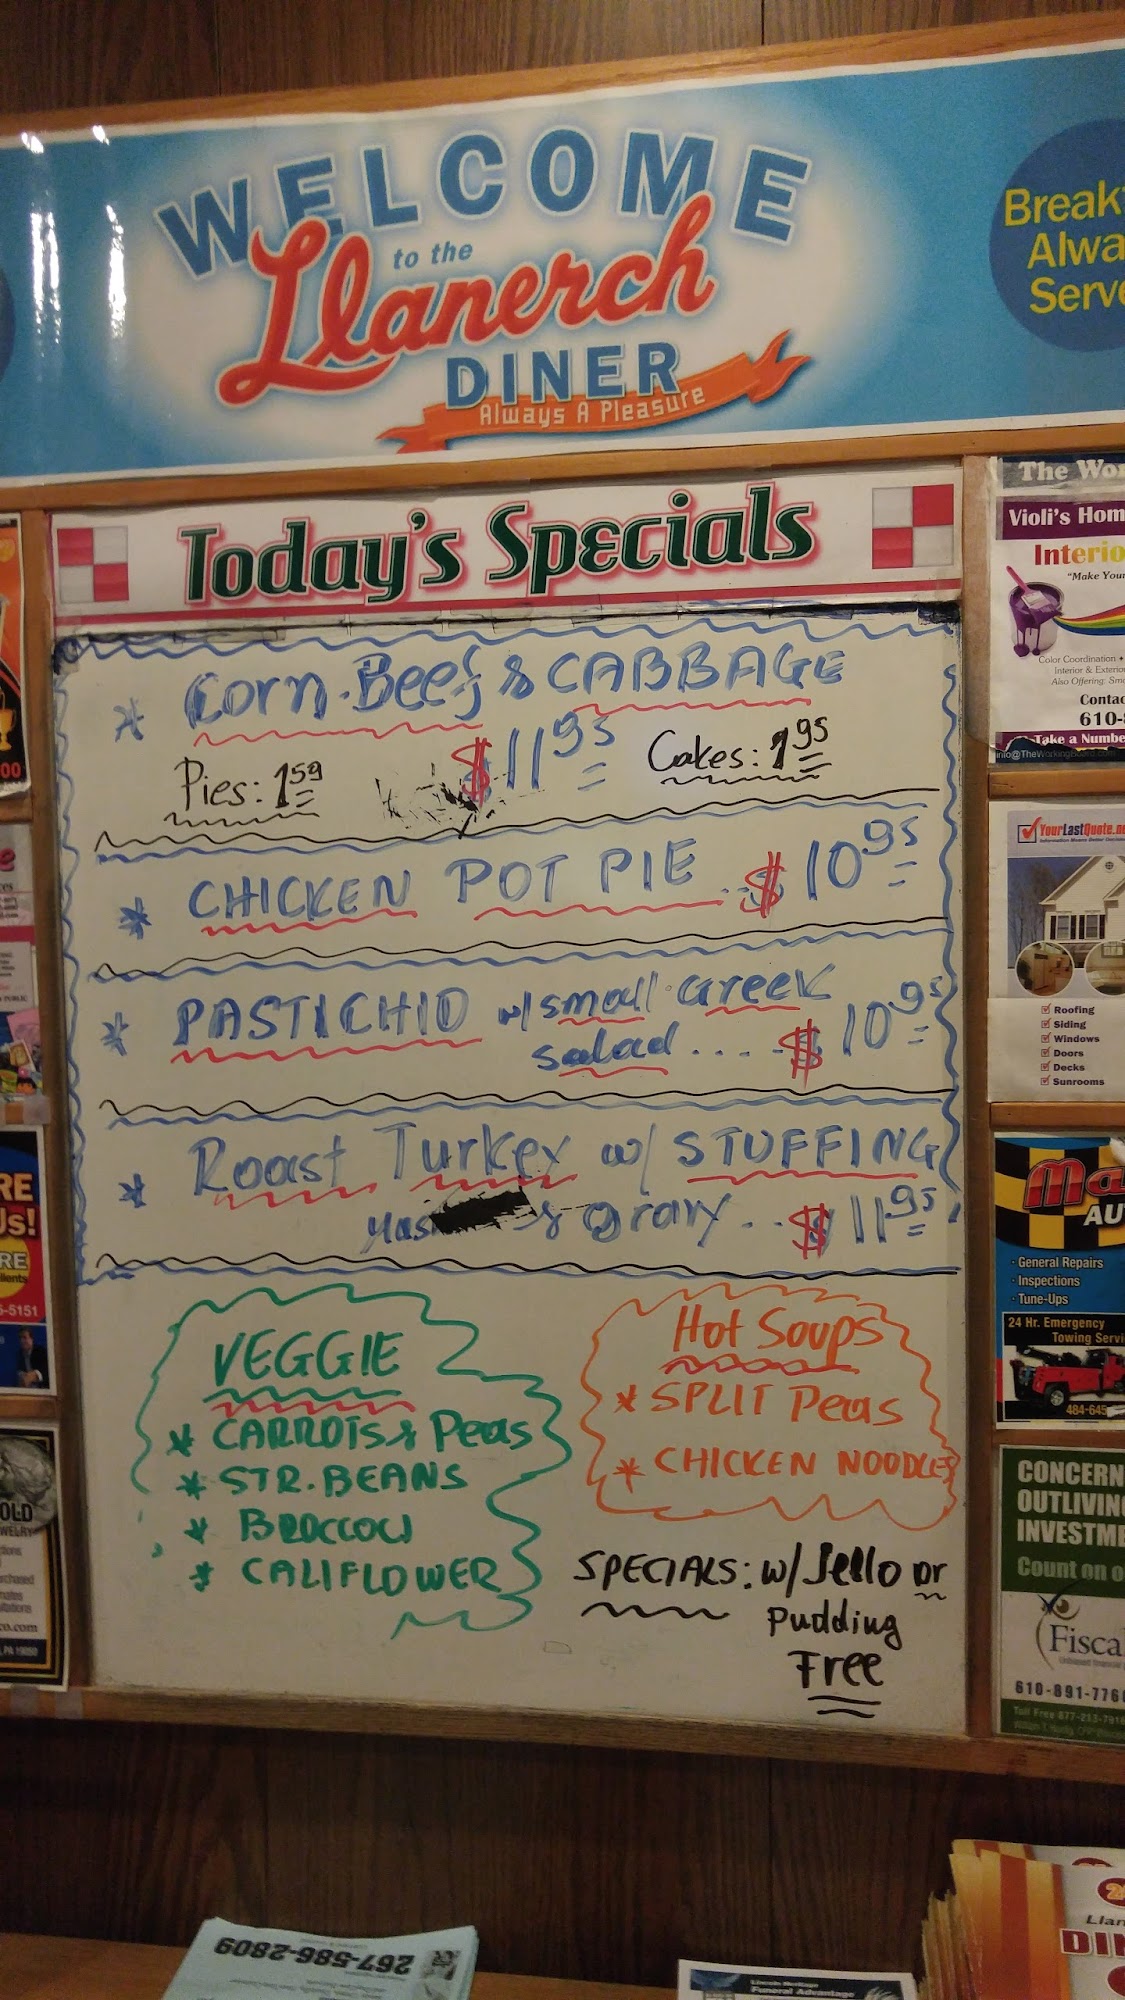 WELCOME
to the
Llanerch
DINER
Always A Pleasure
Alwa
Serve
Today's Specials
* Corn.Beef & CABBAGE
$11.95
Pies: 1.59
Cakes: 1.95
* CHICKEN POT PIE..$10.95
* PASTICHIO w/small Greek
salad....$10.95
* Roast Turkey w/ STUFFING
& gravy..$11.95
VEGGIE
* CARROTS & Peas
* STR.BEANS
* BROCCOLI
* CALIFLOWER
Hot Soups
* SPLIT Peas
* CHICKEN NOODLES
SPECIALS: w/Jello or
pudding
Free
The Wor
Violi's Hom
Interio
"Make Your
Color Coordination •
Interior & Exterio
Also Offering: Sma
Contac
610-
Take a Numbe
YourLastQuote.ne
Roofing
Siding
Windows
Doors
Decks
Sunrooms
Ma
AU
· General Repairs
· Inspections
· Tune-Ups
24 Hr. Emergency
Towing Servi
484-645
CONCERN
OUTLIVIN
INVESTME
Count on o
Fisca
610-891-776
RE
Us!
RE
5-5151
OLD
267-586-2809
Lincoln Heritage
Funeral Advantage
Llan
DIN